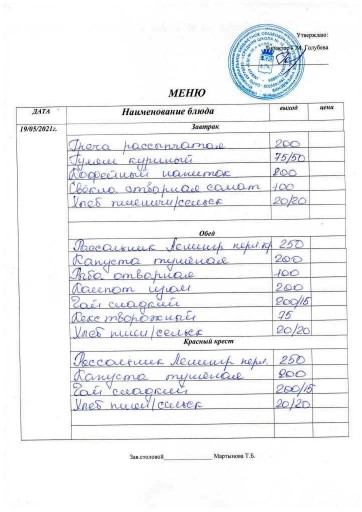 Утверждаю:
М. Голубева
МЕНЮ
ДАТА Наименование блюда выход цена
19/05/2021г. Завтрак
Греча рассыпчатая 200
Гуляш куриный 75/50
Кофейный напиток 200
Свёкла отварная салат 100
Хлеб пшенич/сельск 20/20
Обед
Рассольник Ленингр перл кр 250
Капуста тушёная 200
Рыба отварная 100
Компот изюм 200
Чай сладкий 200/15
Кекс творожный 75
Хлеб пшен/сельск 20/20
Красный крест
Рассольник Ленингр перл. 250
Капуста тушёная 200
Чай сладкий 200/15
Хлеб пшен/сельск 20/20
Зав.столовой Мартынова Т.Б.